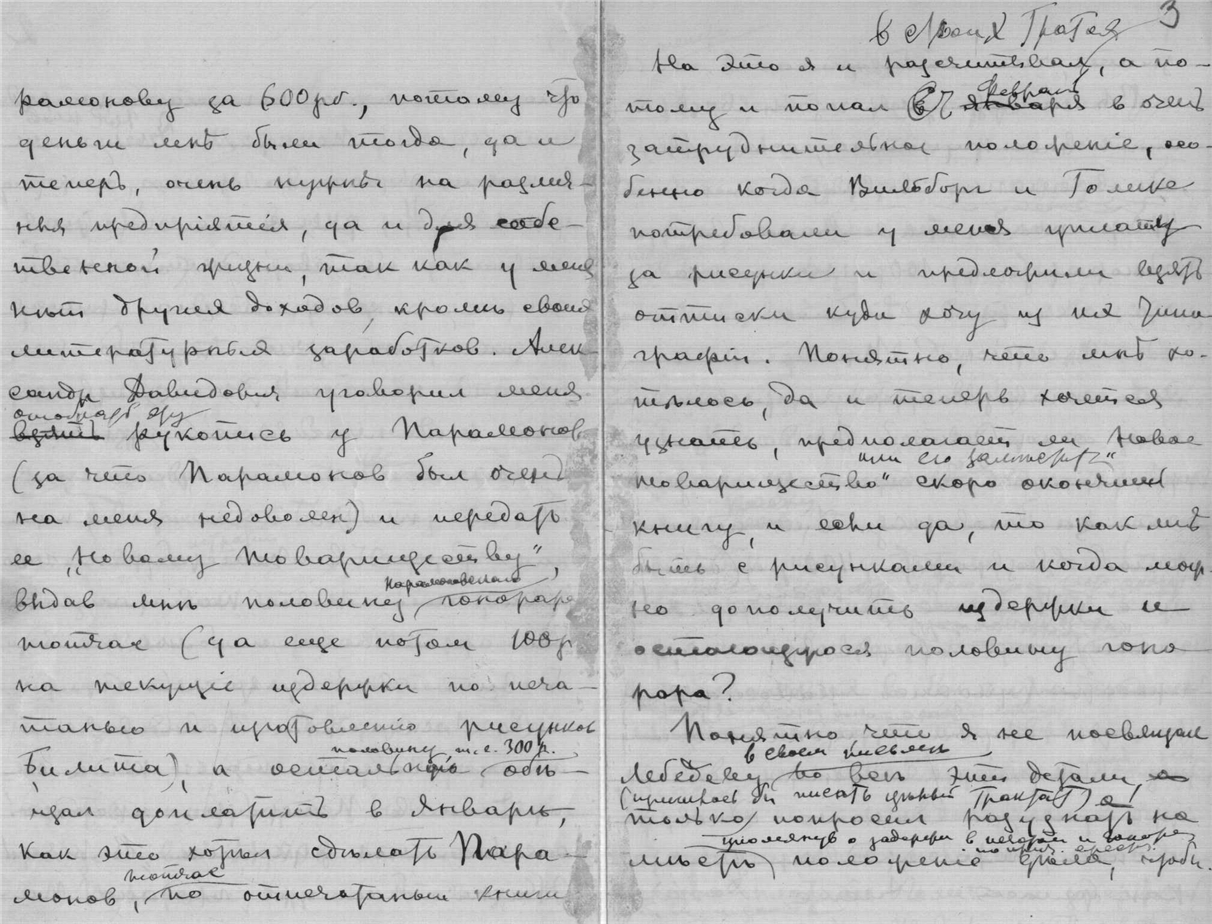 рамонову за 600 рб., потому что
деньги мнѣ были тогда, да и
теперь, очень нужны на различ-
ныя предпріятія, да и для собс-
твенной жизни, так как у меня
нѣт других доходов, кромѣ своих
литературных заработков. Алек-
сандр Давидович уговорил меня
отобрать эту
взять рукопись у Парамонов
(за что Парамонов был очень
на меня недоволен) и передать
ее „Новому Товариществу“,
парамоновскаго
выдав мнѣ половину гонорара
тотчас (да еще потом 100 р
на текущіе издержки по печа-
танью и изготовленію рисунков
половину т.е. 300 р.
Билита), а остальную обѣ-
щал доплатить в Январѣ,
как это хотѣл сдѣлать Пара-
тотчас
монов, по отпечатаньи книги
3
в своих
На это я и разсчитывал, а по-
феврал
тому и попал в январѣ в очень
затруднительное положеніе, осо-
бенно когда Вильборг и Голике
потребовали у меня уплаты
за рисунки и предложили взять
оттиски куда хочу из их Цинко
графіи. Понятно, что мнѣ хо-
тѣлось, да и теперь хочется
узнать, предполагает ли „Новое
или его
товарищество“ скоро окончить
книгу, и если да, то как мнѣ
быть с рисунками и когда мож-
но дополучить издержки и
остающуюся половину гоно
рара?
Понятно что я не посвящал
в своем письмѣ
Лебедеву во всѣ эти детали, а
(пришлось бы писать цѣлый трактат) а
только попросил разузнать на
упомянув о задержкѣ в печатаніи и гонорарѣ
мѣстѣ положеніе дѣла, чтобы